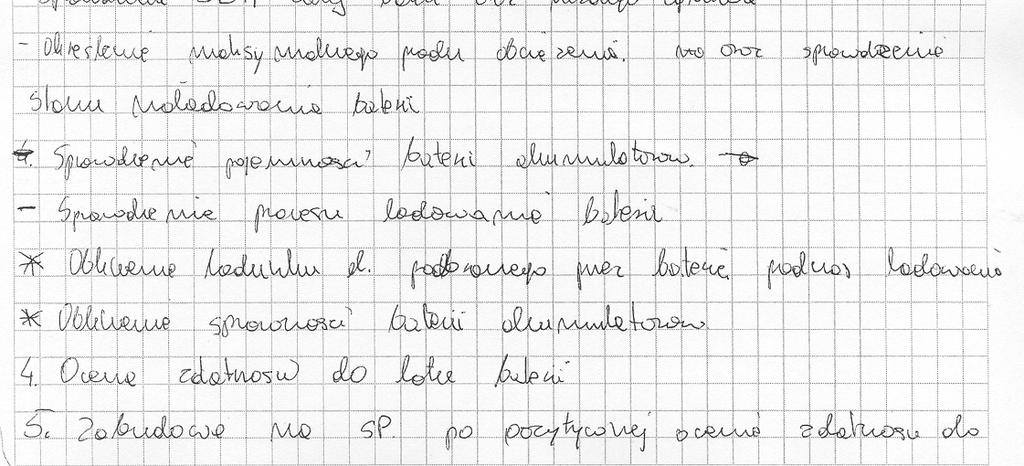 - Określenie maksymalnego prądu obciążenia. oraz sprawdzenie
stanu naładowania baterii
4. Sprawdzenie pojemności baterii akumulatorów.
- Sprawdzenie procesu ładowania baterii
* Obliczenie ładunku el. pobranego przez baterię podczas ładowania
* Obliczenie sprawności baterii akumulatorów
4. Ocena zdatności do lotu baterii
5. Zabudowa na SP. po pozytywnej ocenie zdatności do